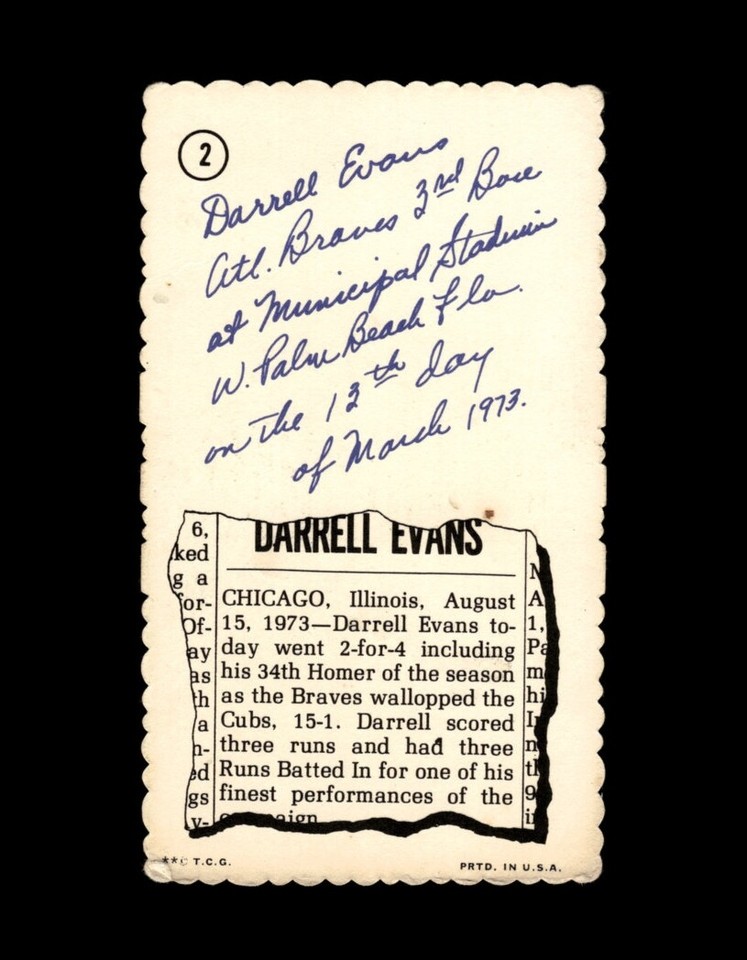 2
Darrell Evans
Atl. Braves 3rd Base
at Municipal Stadium
W. Palm Beach Fla.
on the 13th day
of March 1973.
DARRELL EVANS
CHICAGO, Illinois, August
15, 1973—Darrell Evans to-
day went 2-for-4 including
his 34th Homer of the season
as the Braves wallopped the
Cubs, 15-1. Darrell scored
three runs and had three
Runs Batted In for one of his
finest performances of the
6,
ked
g a
for-
Of-
ay
as
th
a
n-
ed
gs
y-
N
A
1,
Pa
m
hi
I
n
th
9
i
**© T.C.G.
PRTD. IN U.S.A.